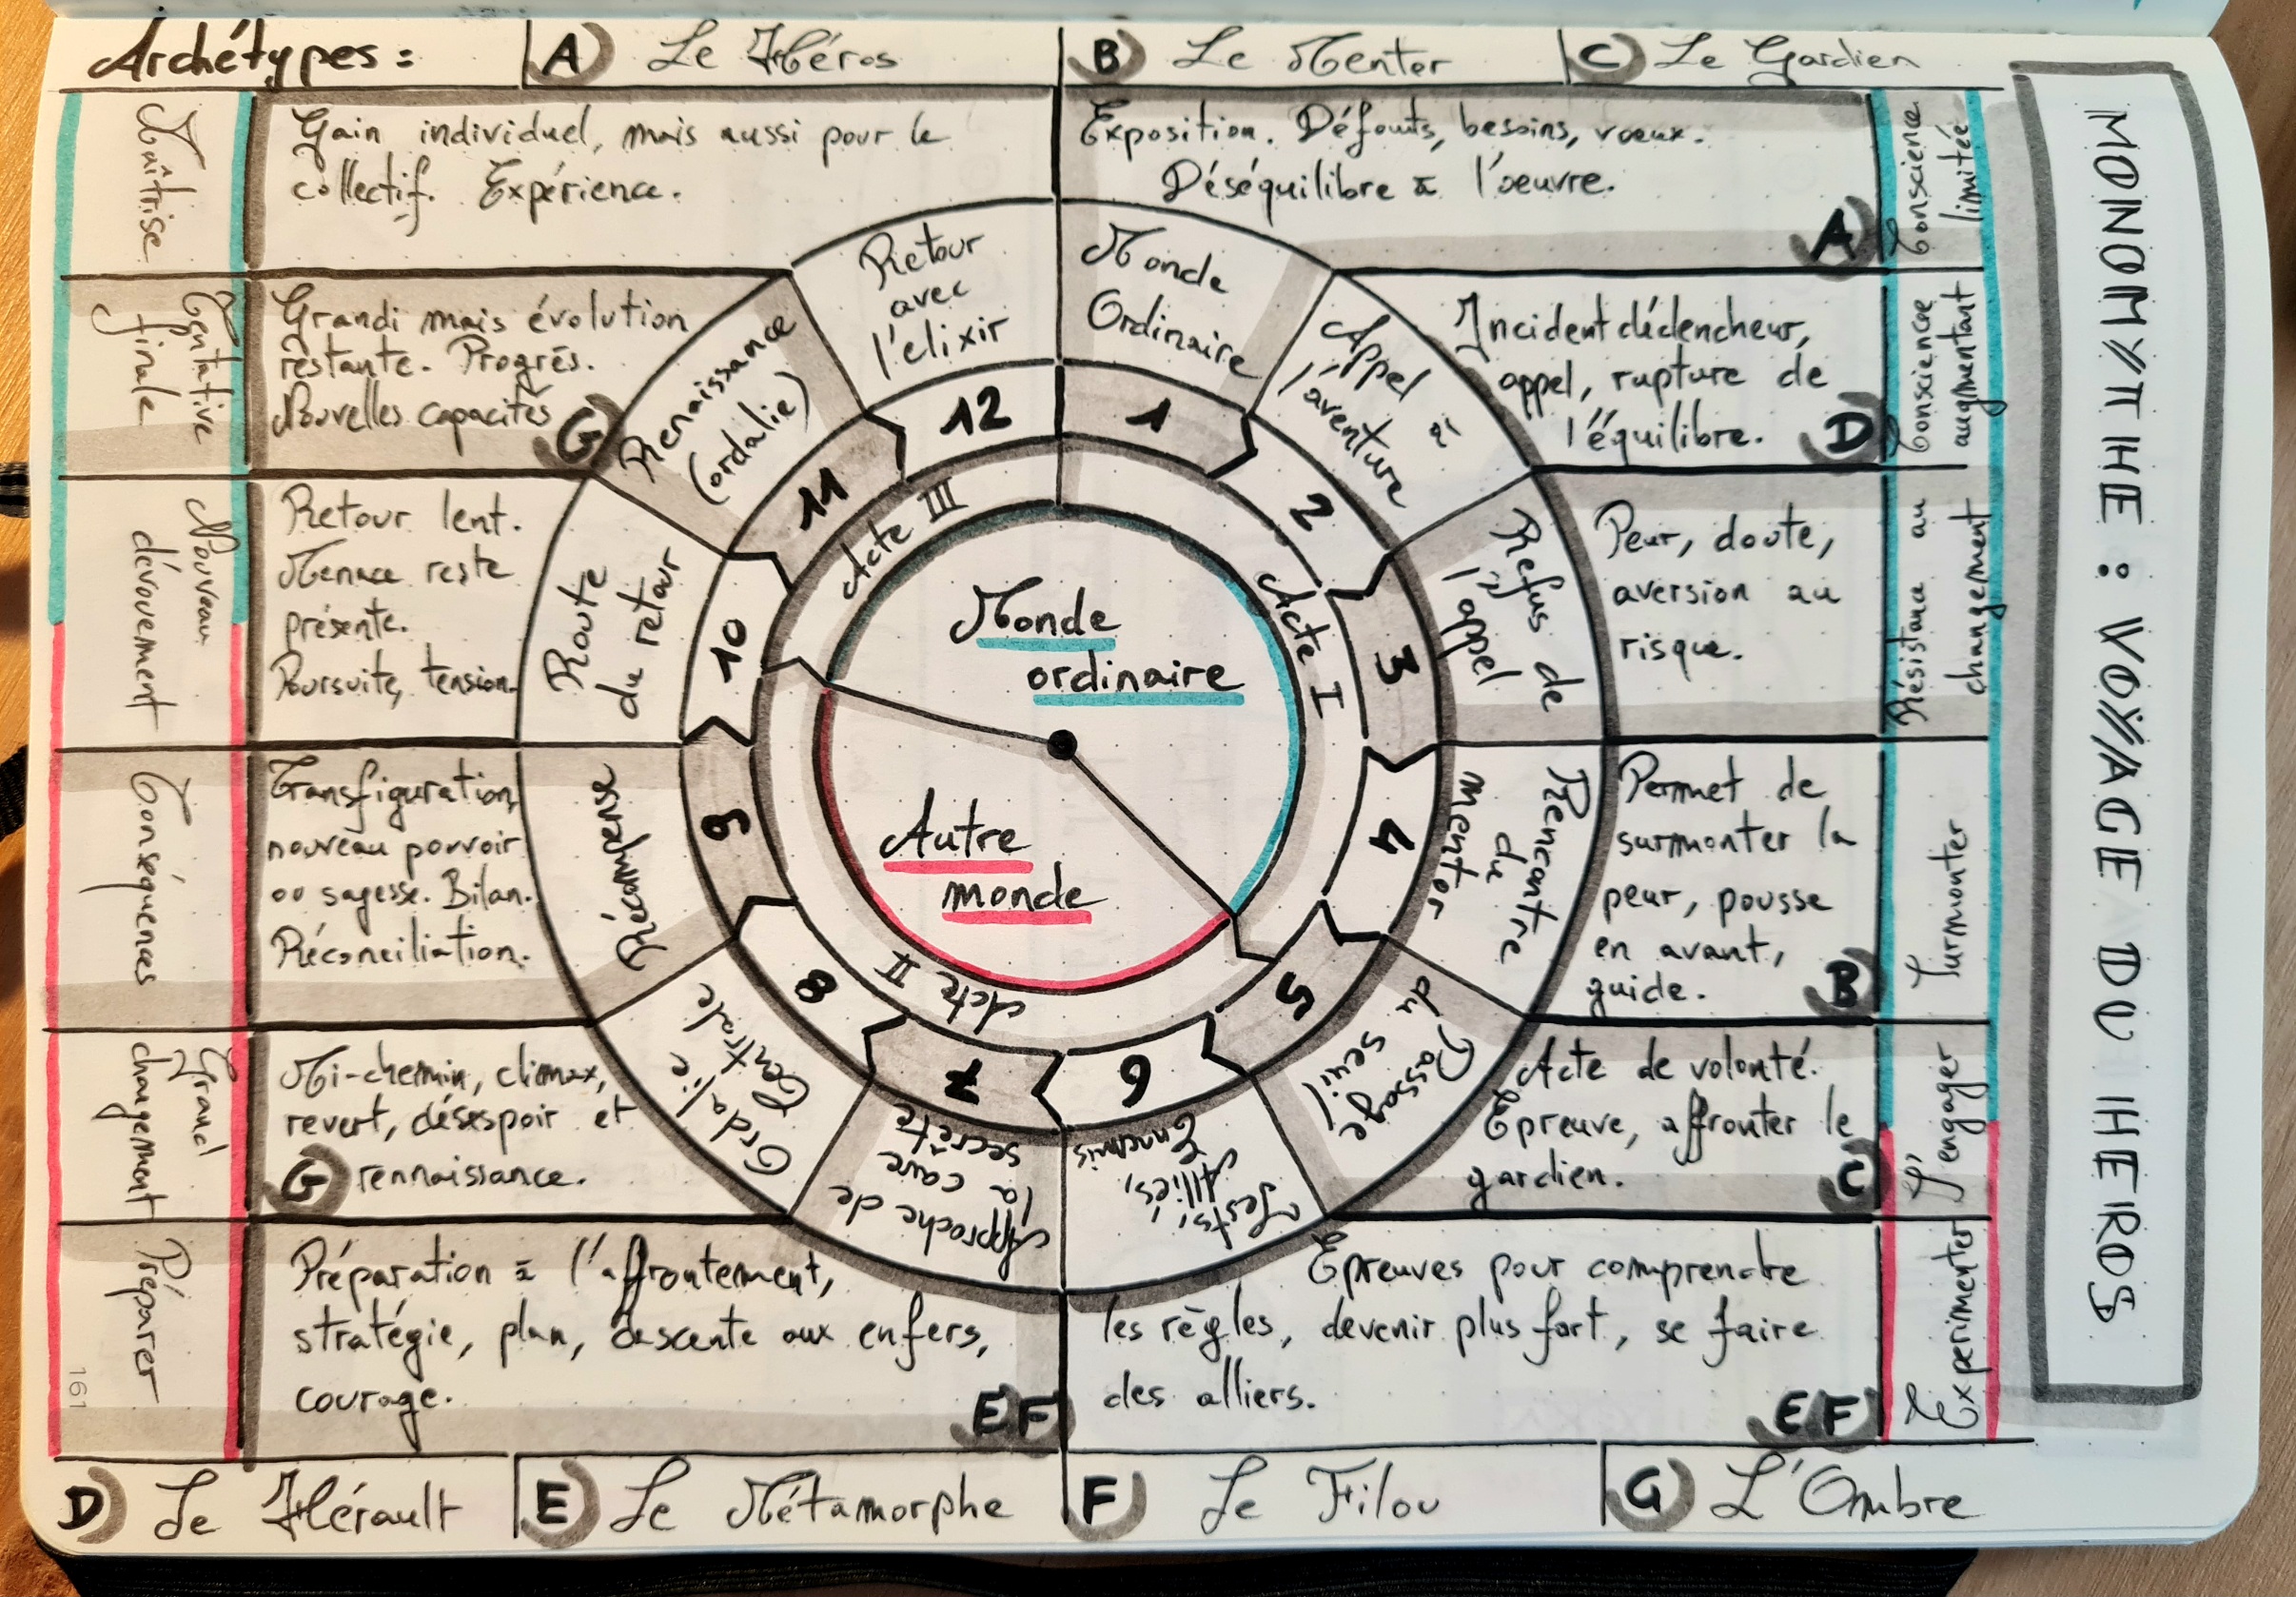 Archétypes :
A Le Héros
B Le Mentor
C Le Gardien
MONOMYTHE : VOYAGE DU HEROS
Maîtrise
Gain individuel, mais aussi pour le
collectif. Expérience.
Exposition. Défauts, besoins, voeux.
Déséquilibre à l'oeuvre.
A
Conscience
limitée
Tentative
finale
Grandi mais évolution
restante. Progrés.
Nouvelles capacités
G
Incident déclencheur,
appel, rupture de
l'équilibre.
D
Conscience
augmentant
Nouveau
dévouement
Retour lent.
Menace reste
présente.
Poursuite, tension.
Peur, doute,
aversion au
risque.
Résistance au
changement
Conséquences
Transfiguration,
nouveau pouvoir
ou sagesse. Bilan.
Réconciliation.
Permet de
surmonter la
peur, pousse
en avant,
guide.
B
Surmonter
Grand
changement
Mi-chemin, climax,
revert, désespoir et
rennaissance.
G
Acte de volonté.
Epreuve, affronter le
gardien.
C
S'engager
Préparer
Préparation à l'affrontement,
stratégie, plan, descente aux enfers,
courage.
E F
Epreuves pour comprendre
les règles, devenir plus fort, se faire
des alliers.
E F
Experimenter
Monde
Ordinaire
1
Appel à
l'aventure
2
Refus de
l'appel
3
Rencontre
du
mentor
4
Passage
du seuil
5
Tests,
Alliés,
Ennemis
6
Approche de
la cave
secrète
7
Ordalie
Centrale
8
Récompense
9
Route
du retour
10
Renaissance
(ordalie)
11
Retour
avec
l'elixir
12
Acte I
Acte II
Acte III
Monde
ordinaire
Autre
monde
161
D Le Hérault
E Le Métamorphe
F Le Filou
G L'Ombre